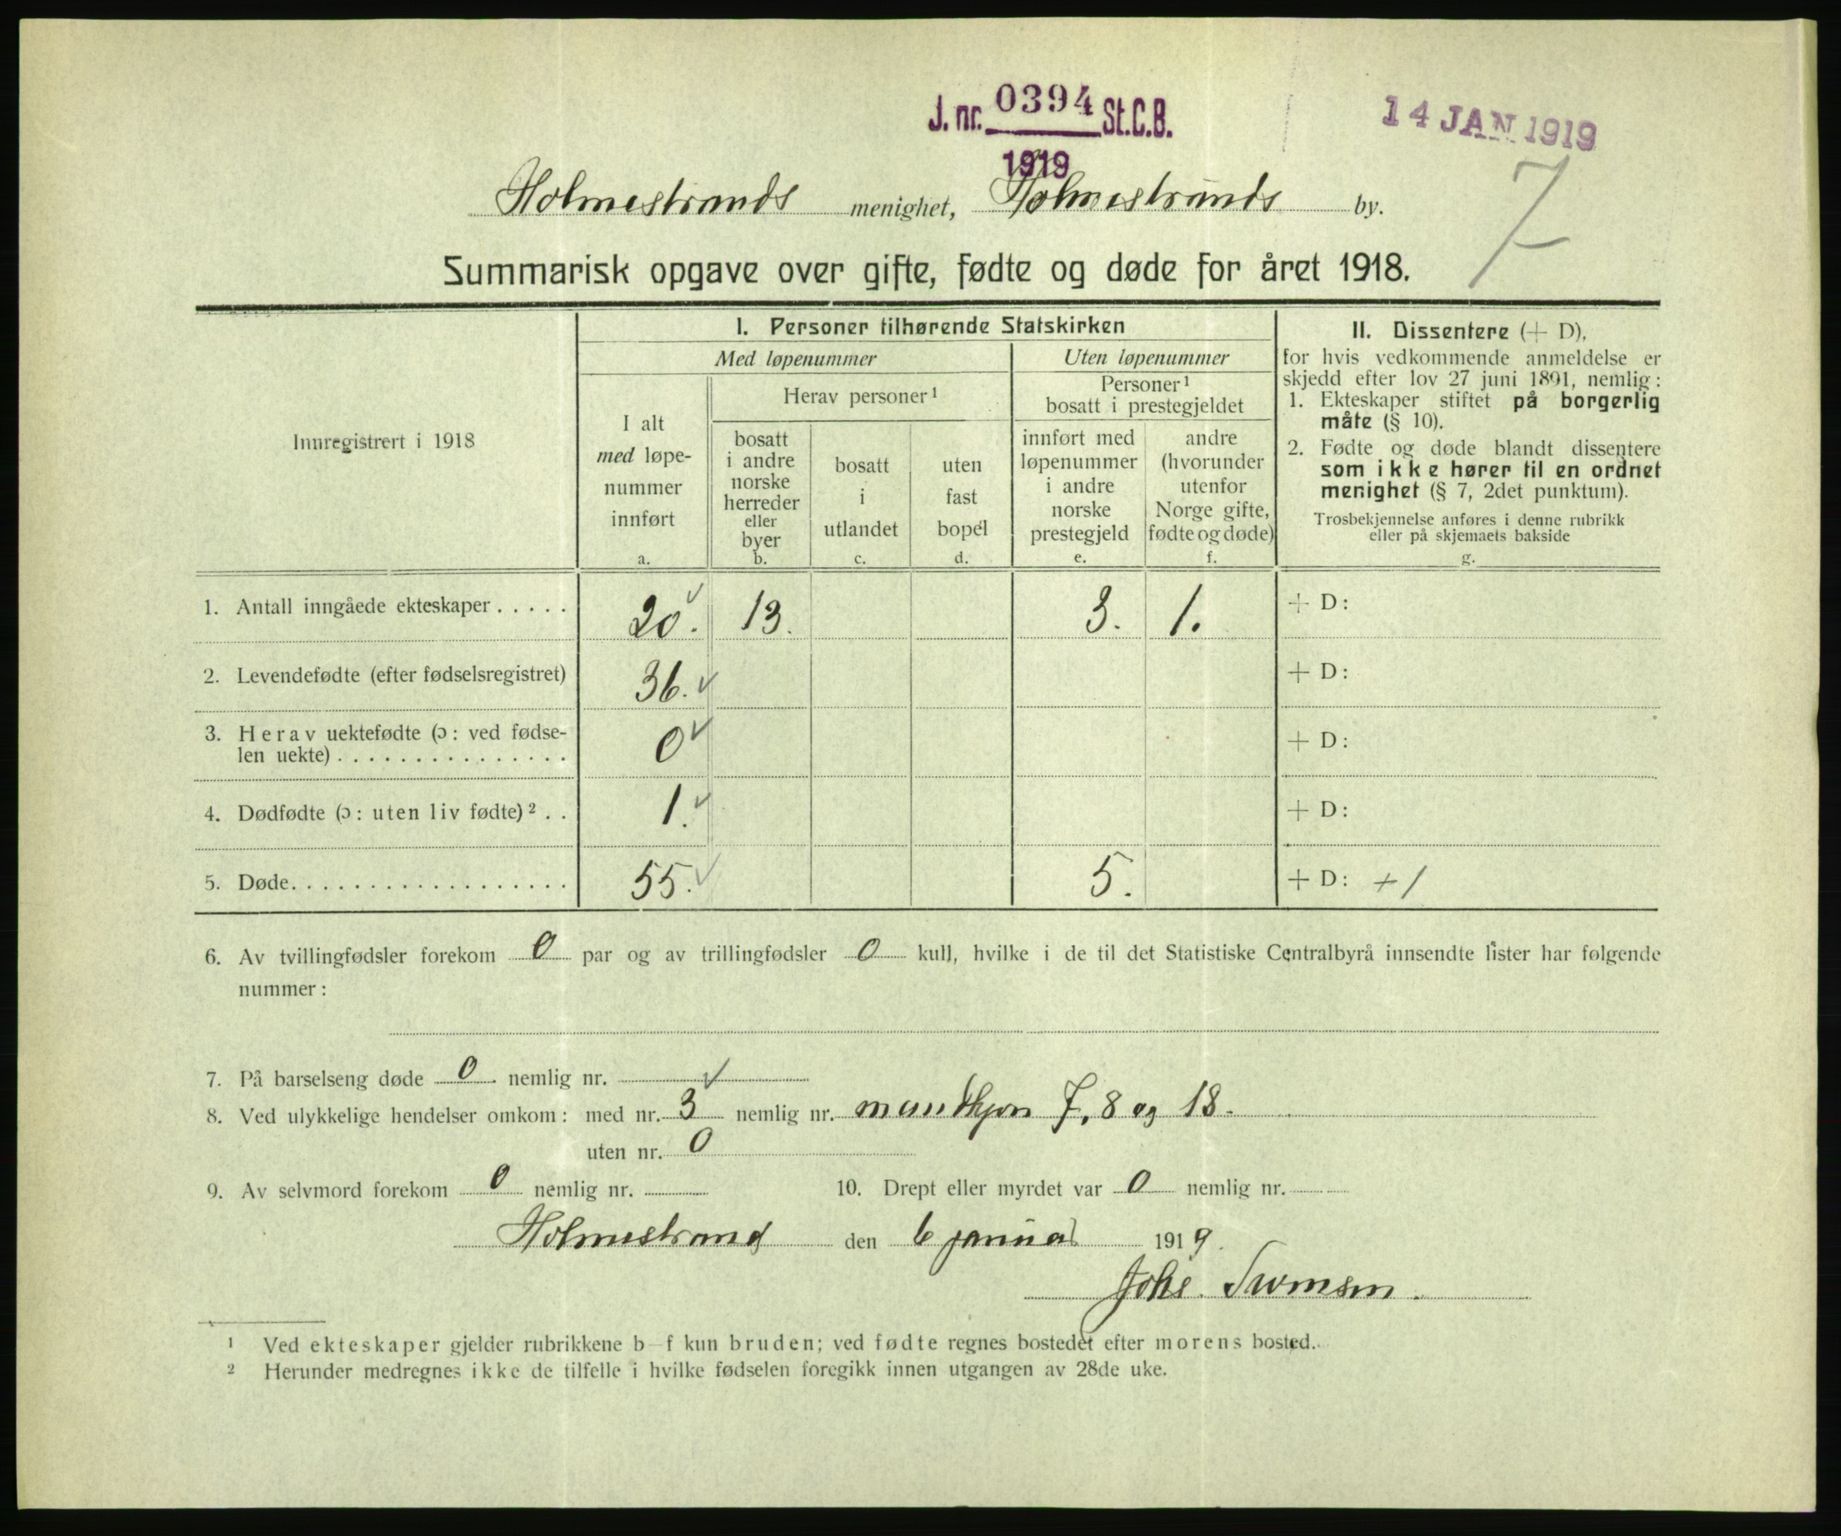 J. nr. 0394 St.C.B.
1919
14 JAN 1919
7
Holmestrands menighet, Holmestrands by.
Summarisk opgave over gifte, fødte og døde for året 1918.
Innregistrert i 1918
I. Personer tilhørende Statskirken
Med løpenummer
Uten løpenummer
I alt
med løpe-
nummer
innført
a.
Herav personer¹
bosatt
i andre
norske
herreder
eller
byer
b.
bosatt
i
utlandet
c.
uten
fast
bopel
d.
Personer¹
bosatt i prestegjeldet
innført med
løpenummer
i andre
norske
prestegjeld
e.
andre
(hvorunder
utenfor
Norge gifte,
fødte og døde)
f.
II. Dissentere (+ D),
for hvis vedkommende anmeldelse er
skjedd efter lov 27 juni 1891, nemlig:
1. Ekteskaper stiftet på borgerlig
måte (§ 10).
2. Fødte og døde blandt dissentere
som ikke hører til en ordnet
menighet (§ 7, 2det punktum).
Trosbekjennelse anføres i denne rubrikk
eller på skjemaets bakside
g.
1. Antall inngåede ekteskaper . . . . . 20. 13. 3. 1. + D:
2. Levendefødte (efter fødselsregistret) 36. + D:
3. Herav uektefødte (ɔ: ved fødse-
len uekte) . . . . . . . . . . . . . . . 0 + D:
4. Dødfødte (ɔ: uten liv fødte)² . . 1. + D:
5. Døde. . . . . . . . . . . . . . . . . . 55. 5. + D: +1
6. Av tvillingfødsler forekom 0 par og av trillingfødsler 0 kull, hvilke i de til det Statistiske Centralbyrå innsendte lister har følgende
nummer:
7. På barselseng døde 0 nemlig nr. ✓
8. Ved ulykkelige hendelser omkom: med nr. 3 nemlig nr. mandkjøn 7, 8 og 18.
uten nr. 0
9. Av selvmord forekom 0 nemlig nr.
10. Drept eller myrdet var 0 nemlig nr.
Holmestrand den 6 januar 1919.
Johs.
¹ Ved ekteskaper gjelder rubrikkene b–f kun bruden; ved fødte regnes bostedet efter morens bosted.
² Herunder medregnes ikke de tilfelle i hvilke fødselen foregikk innen utgangen av 28de uke.